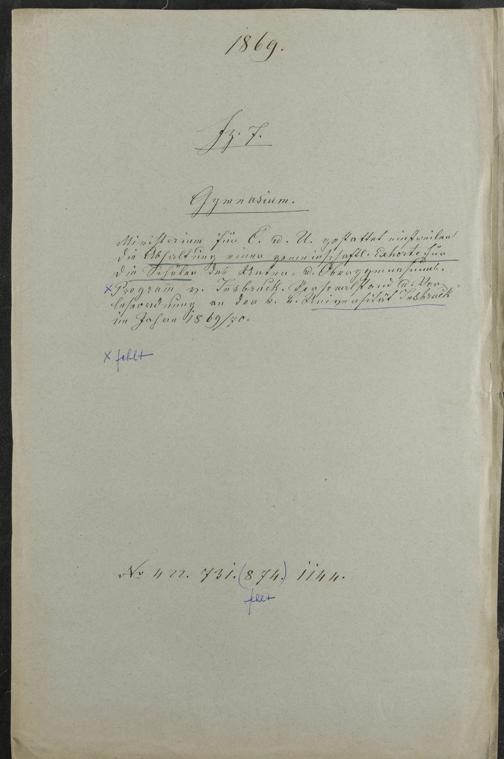 1869.
Fz. 7.
Gymnasium.
Ministerium für C. u. U. gestattet einstweilen
die Abhaltung einer gemeinschaftl. Exhorte für
die Schüler des Unter- u. Obergymnasiums.
x Program v. Insbruck. Personalstand u. Vor-
leseordnung an der k. k. Universität Insbruck
im Jahre 1869/70.
x fehlt
No 422. 731. (874.) 1144.
fehlt